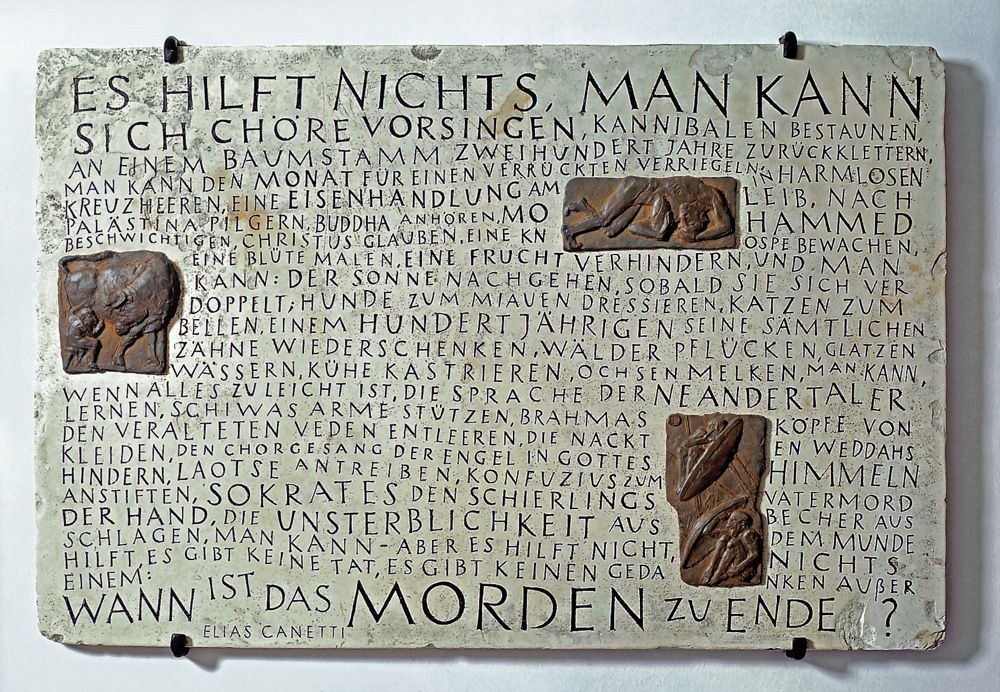 ES HILFT NICHTS, MAN KANN
SICH CHÖRE VORSINGEN, KANNIBALEN BESTAUNEN,
AN EINEM BAUMSTAMM ZWEIHUNDERT JAHRE ZURÜCKKLETTERN,
MAN KANN DEN MONAT FÜR EINEN VERRÜCKTEN VERRIEGELN, HARMLOSEN
KREUZHEEREN, EINE EISENHANDLUNG AM LEIB, NACH
PALÄSTINA PILGERN, BUDDHA ANHÖREN, MOHAMMED
BESCHWICHTIGEN, CHRISTUS GLAUBEN, EINE KNOSPE BEWACHEN,
EINE BLÜTE MALEN, EINE FRUCHT VERHINDERN, UND MAN
KANN: DER SONNE NACHGEHEN, SOBALD SIE SICH VER
DOPPELT; HUNDE ZUM MIAUEN DRESSIEREN, KATZEN ZUM
BELLEN, EINEM HUNDERTJÄHRIGEN SEINE SÄMTLICHEN
ZÄHNE WIEDERSCHENKEN, WÄLDER PFLÜCKEN, GLATZEN
WÄSSERN, KÜHE KASTRIEREN, OCHSEN MELKEN, MAN KANN,
WENN ALLES ZU LEICHT IST, DIE SPRACHE DER NEANDERTALER
LERNEN, SCHIWAS ARME STÜTZEN, BRAHMAS KÖPFE VON
DEN VERALTETEN VEDEN ENTLEEREN, DIE NACKTEN WEDDAHS
KLEIDEN, DEN CHORGESANG DER ENGEL IN GOTTES HIMMELN
HINDERN, LAOTSE ANTREIBEN, KONFUZIUS ZUM VATERMORD
ANSTIFTEN, SOKRATES DEN SCHIERLINGSBECHER AUS
DER HAND, DIE UNSTERBLICHKEIT AUS DEM MUNDE
SCHLAGEN, MAN KANN – ABER ES HILFT NICHT, NICHTS
HILFT, ES GIBT KEINE TAT, ES GIBT KEINEN GEDANKEN AUẞER
EINEM:
WANN IST DAS MORDEN ZU ENDE ?
ELIAS CANETTI